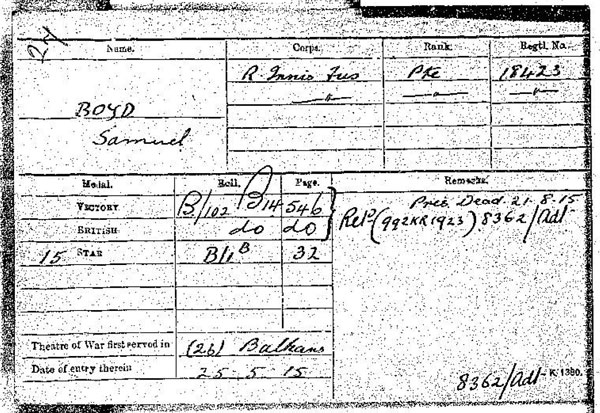 24
Name. Corps. Rank. Regtl. No.
R. Innis Fus Pte 18423
— " — — " — — " —
BOYD
Samuel
Medal. Roll. Page. Remarks.
VICTORY B/102 B14 546 Pres. Dead. 21-8-15
BRITISH do do Retd (992KR1923) 8362/Adt
15 STAR B/1B 32
Theatre of War first served in (2b) Balkans
Date of entry therein 25 5 15
8362/Adt K 1380.